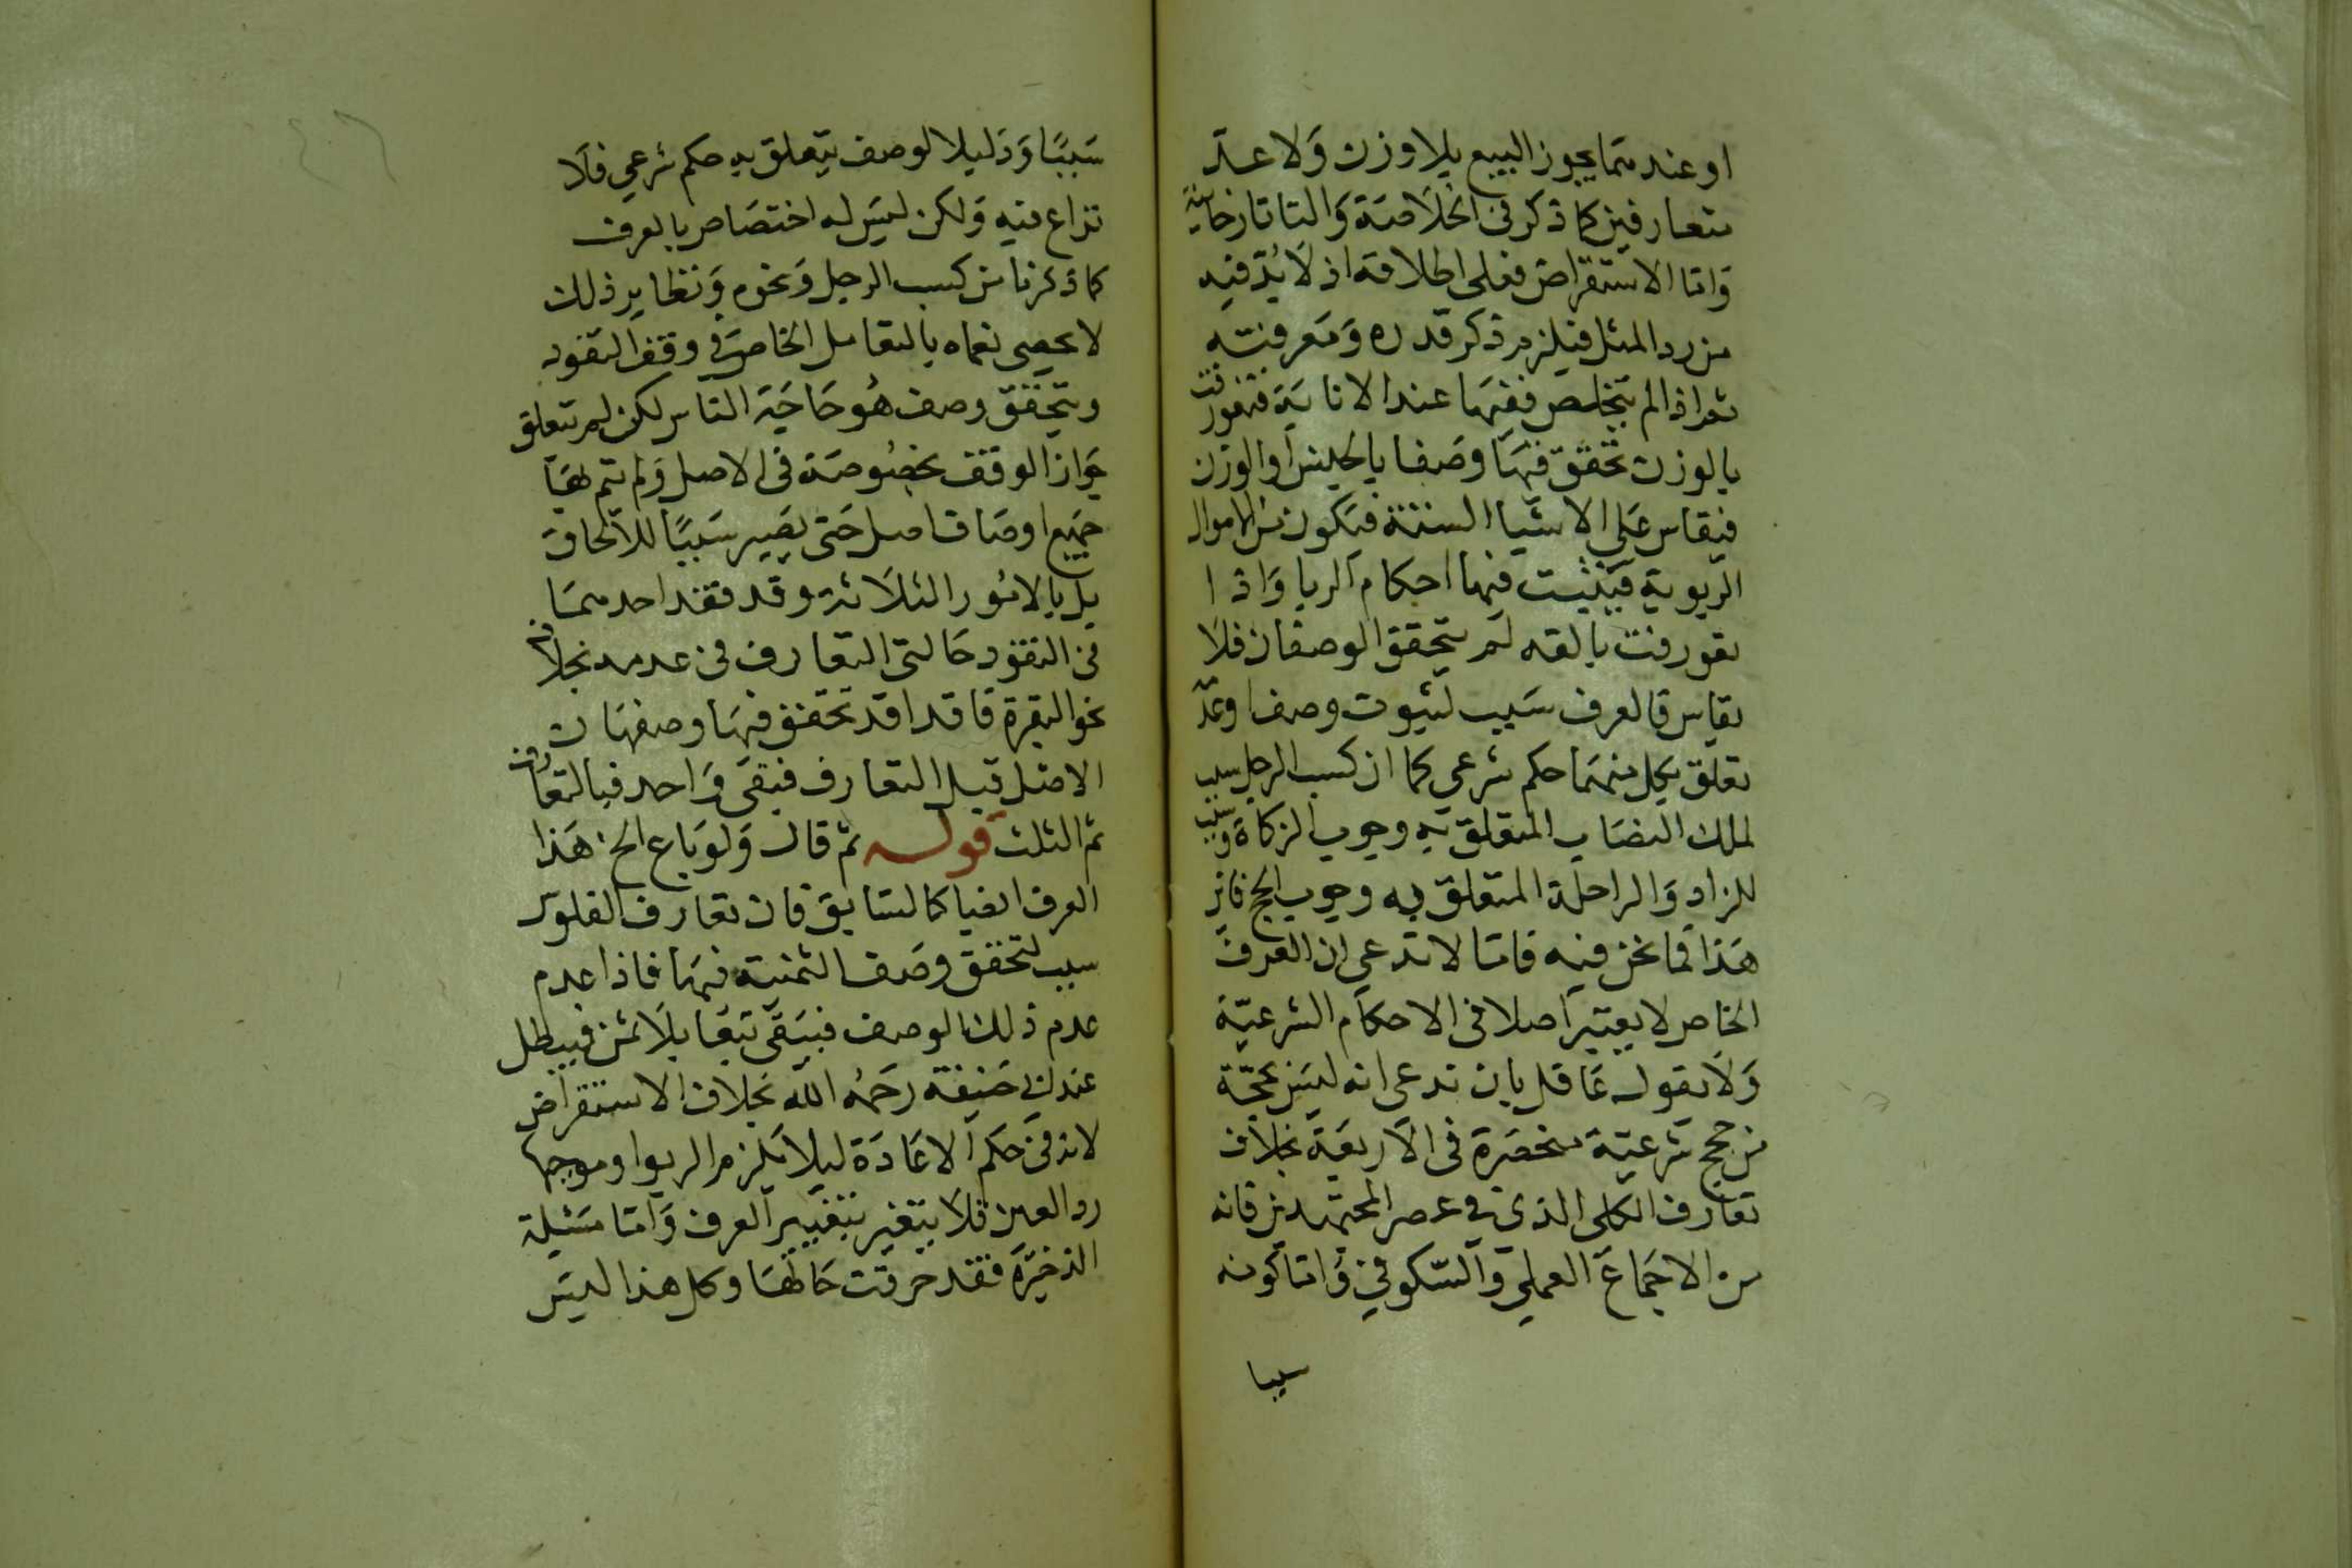 او عند مما يجوز البيع بلا وزن ولا عد
متعارفين كما ذكر في الخلاصة والتاتارخانية
واما الاستقراض فعلى اطلاقه اذ لا بد فيه
من رد المثل فيلزم ذكر قدره ومعرفته
ثم اذا لم فيها عند
بالوزن تحقق فيها وصفا بالجنس او الوزن
فيقاس على الاشيا الستة فيكون من الاموال
الربوية فيثبت فيها احكام الربا واذا
لم يتحقق الوصفان فلا
يقاس فالعرف سبب لثبوت وصف
تعلق بكل منهما حكم شرعي كما ان كسب الرجل سبب
لملك النصاب المتعلق به وجوب الزكاة وسبب
للزاد والراحلة المتعلق به وجوب الحج فاين
هذا مما نحن فيه فانا لا ندعي ان العرف
الخاص لا يعتبر اصلا في الاحكام الشرعية
ولا يقول عاقل بان ندعى انه ليس بحجة
من حجج شرعية منحصرة في الاربعة بخلاف
تعارف الكلى الذي في عصر المجتهدين فانه
من الاجماع العملي والسكوتي واما كونه
سببا
سببًا ودليلا لوصف يتعلق به حكم شرعي فلا
نزاع فيه ولكن ليس له اختصاص بالعرف
كما ذكرنا من كسب الرجل ونحوه ونظاير ذلك
لا يحصى نعم بالتعامل الخاص في وقف النقود
ويتحقق وصف هو حاجة الناس لكن لم يتعلق
جواز الوقف بخصوصة في الاصل ولم يتم لها
جميع اوصاف اصل حتى يصير سببًا للالحاق
بل بالامور الثلاثة وقد فقد احدهما
في النقود حالتي التعارف في عدمه بخلاف
نحو البقرة قد تحقق فيها وصفها ن
الاصل قبل التعارف فبقى واحد فبالتعارف
تم الثلث قوله ثم قال ولو باع الخ هذا
العرف ايضا كالسابق فان تعارف الفلوس
سبب لتحقق وصف الثمنية فيها فاذا عدم
عدم ذلك الوصف فيبقى بيعا بلا ثمن فيبطل
عند ابي حنيفة رحمه الله بخلاف الاستقراض
لانه في حكم الاعادة ليلا يلزم الربوا وموجبها
رد العين فلا يتغير بتغيير العرف واما مسئلة
الذخيرة فقد عرفت حالها وكل هذا ليس